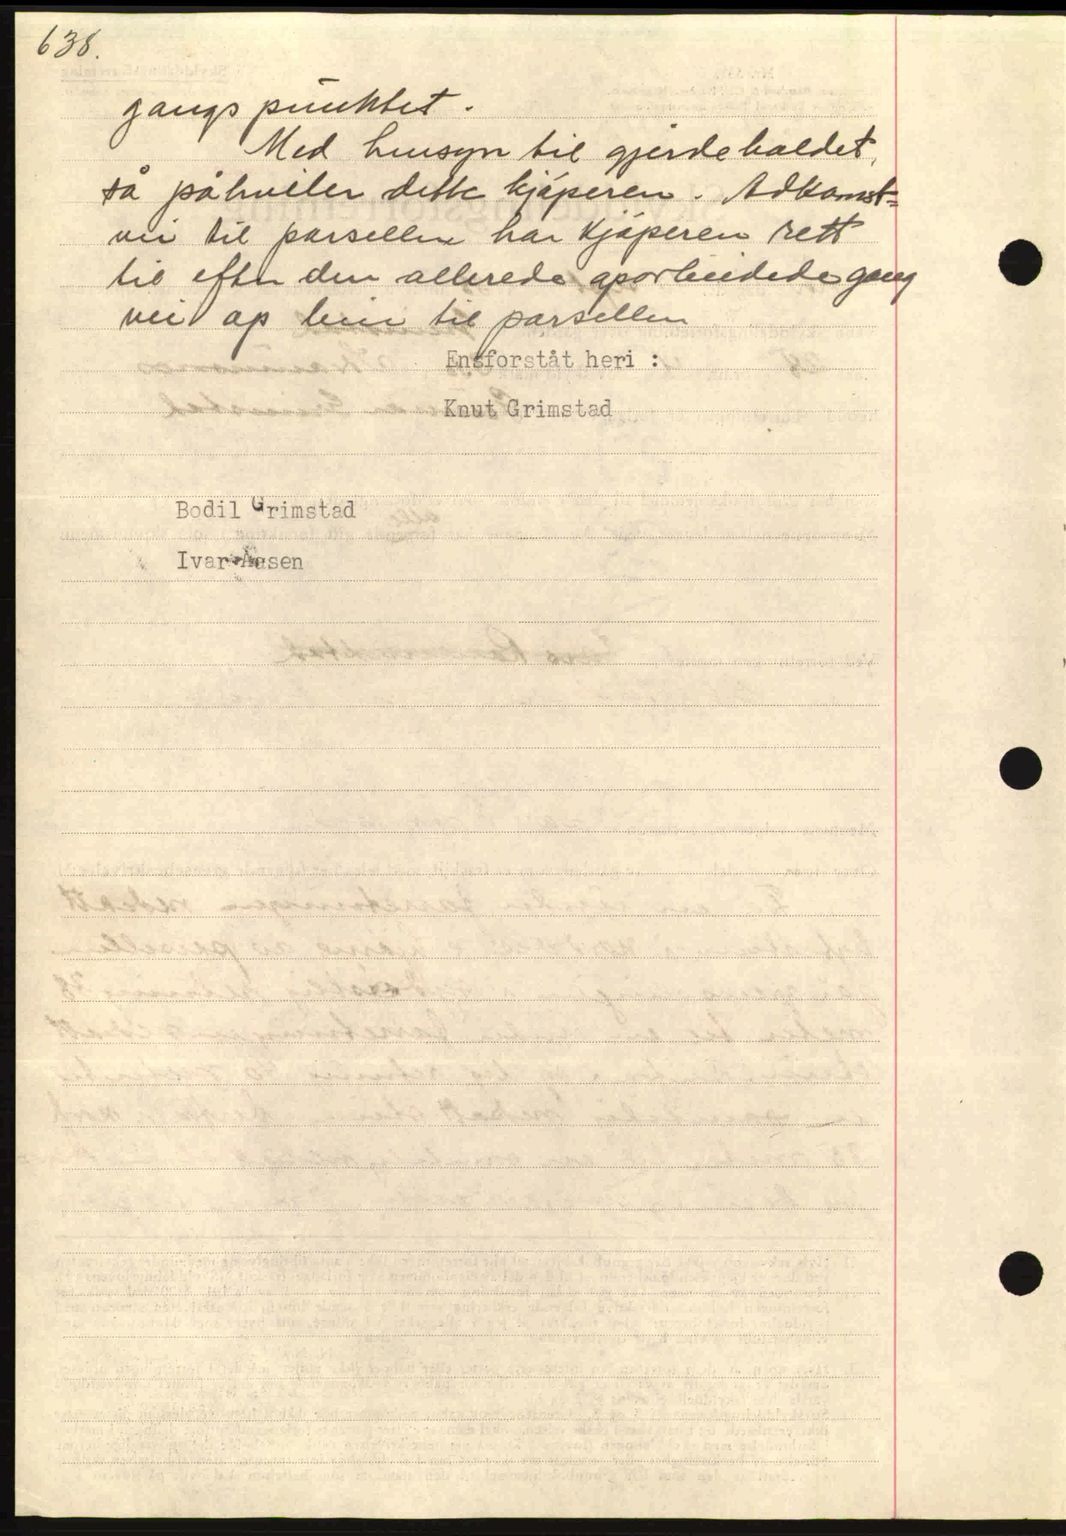 638.
gangspunktet.
Med hensyn til gjerdeholdet,
så påhviler dette kjøperen. Adkomst=
vei til parsellen har kjøperen rett
til efter den allerede oparbeidede gang
vei op lien til parsellen
Ensforståt heri :
Knut Grimstad
Bodil Grimstad
Ivar Aasen